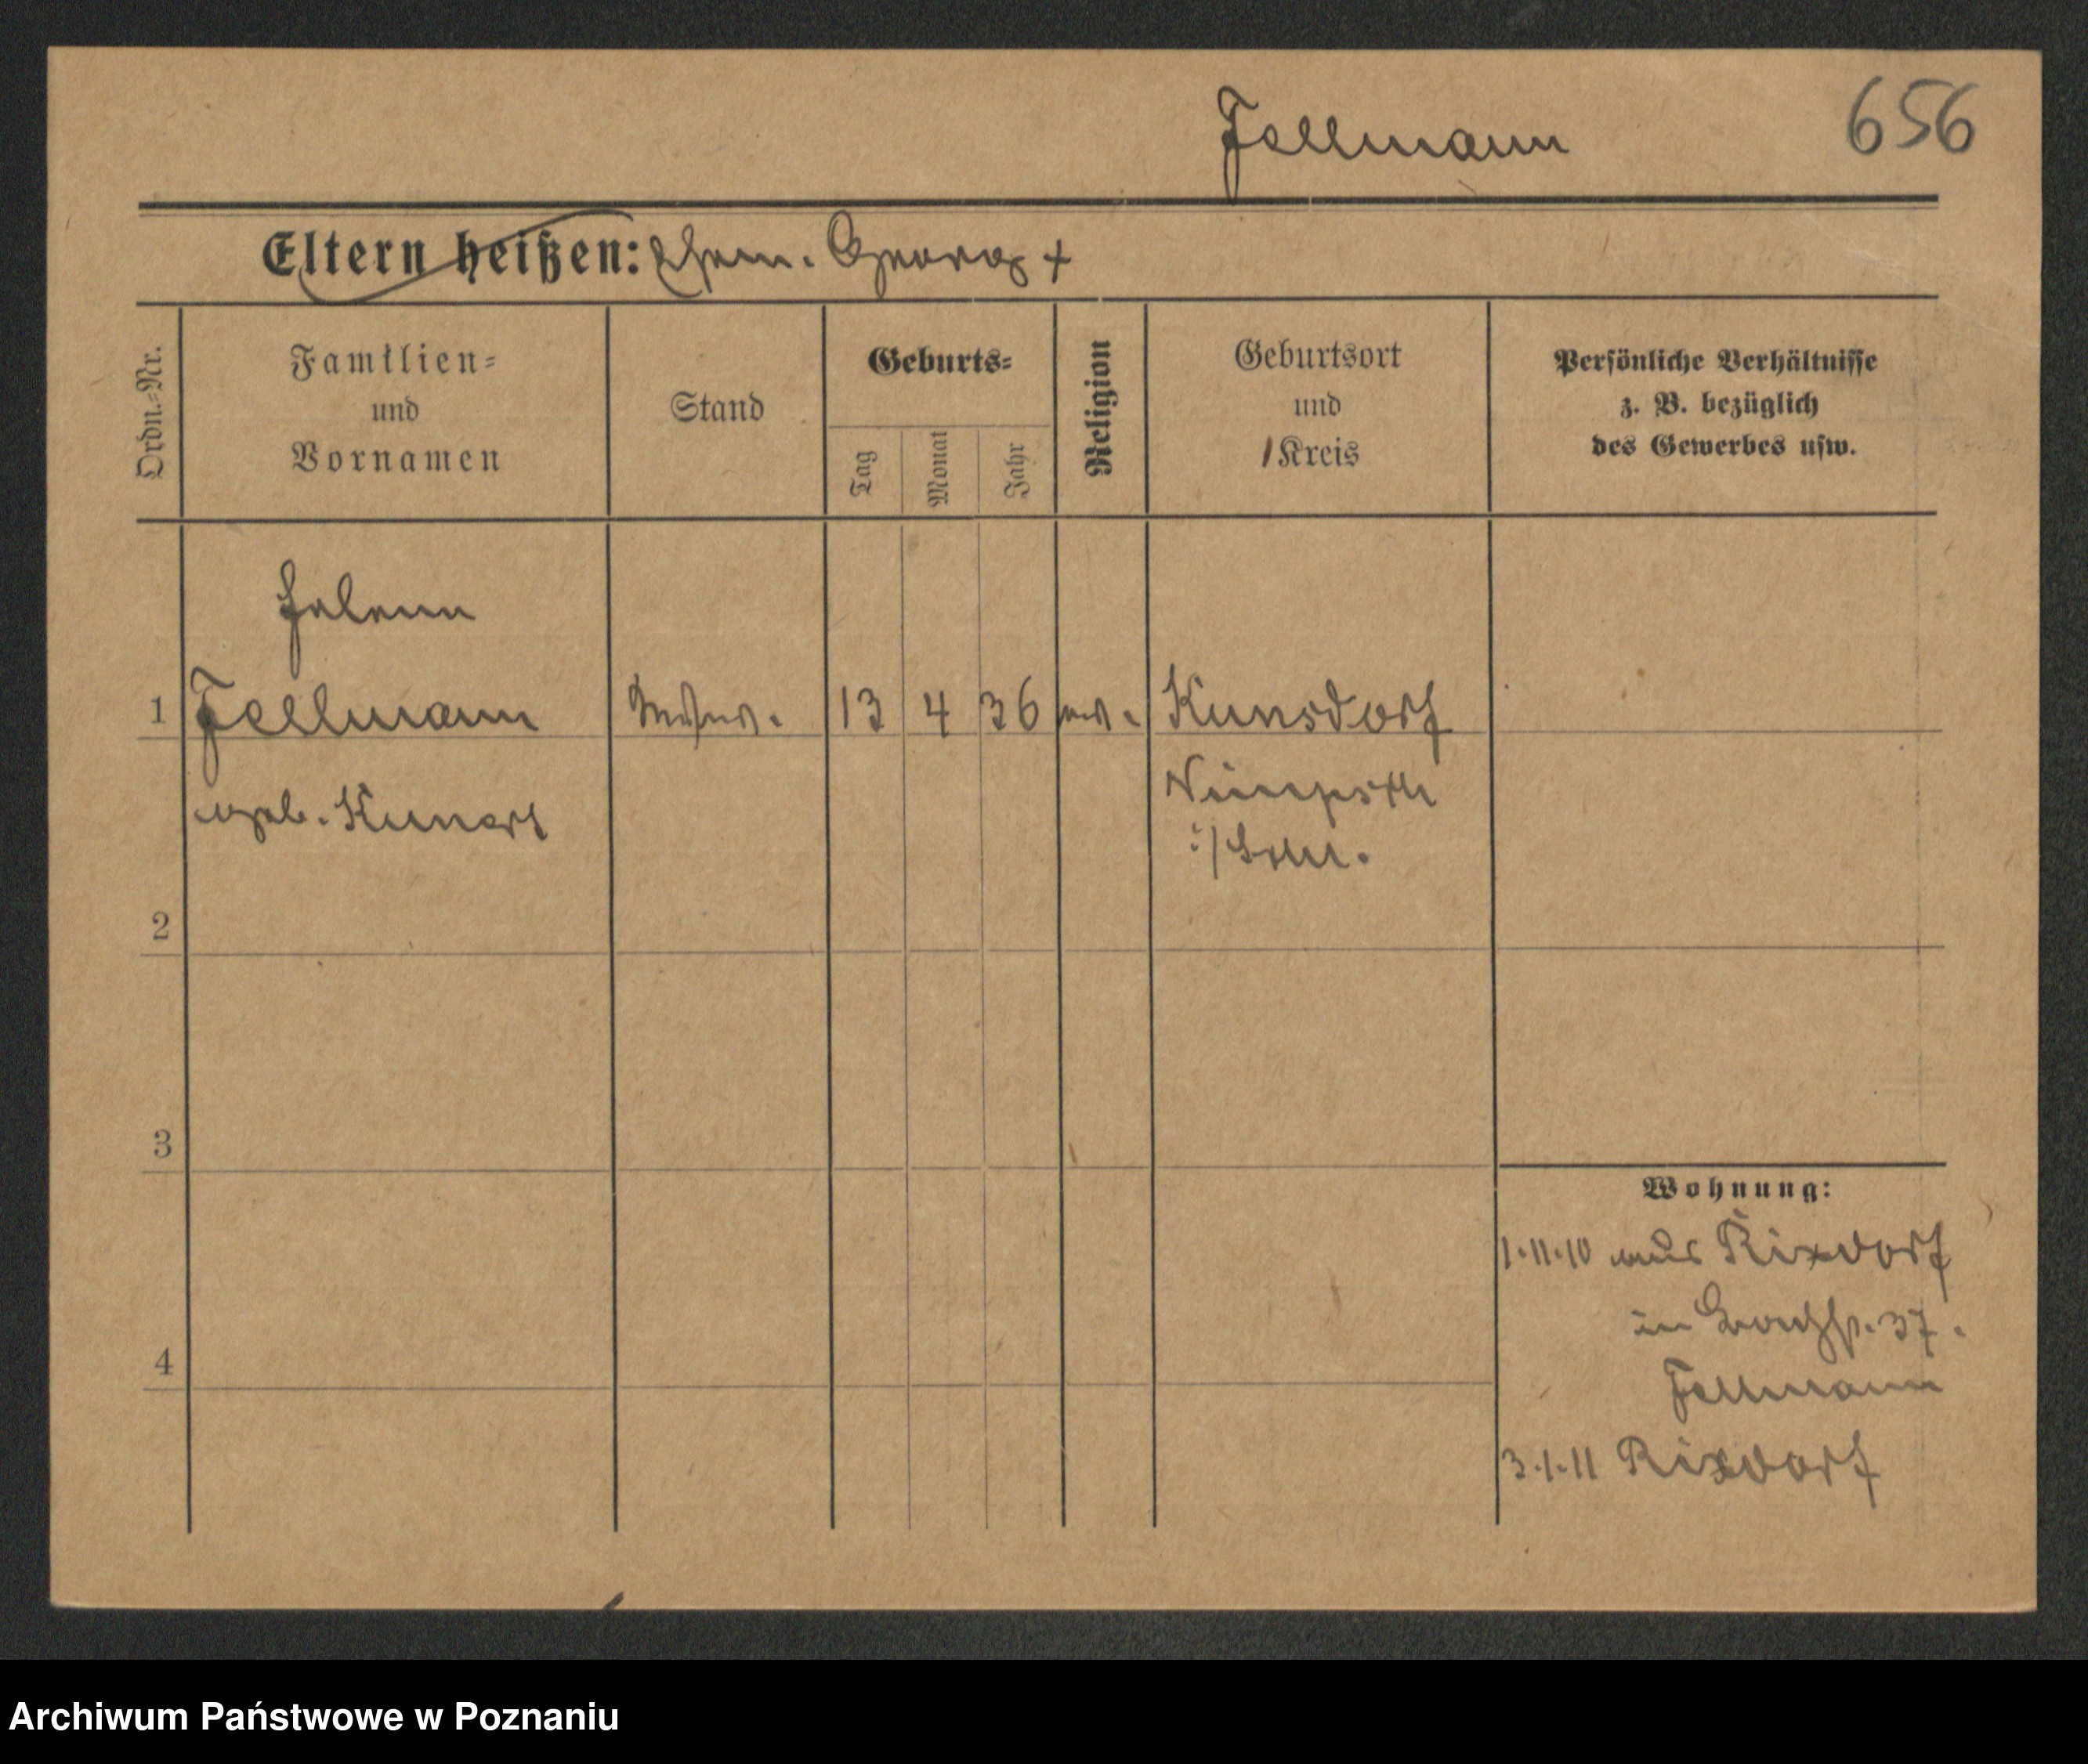 Fellmann 656
Eltern heißen: Ehem. Georg +
Ordn.-Nr.
Familien-
und
Vornamen
Stand
Geburts-
Tag
Monat
Jahr
Religion
Geburtsort
und
Kreis
Persönliche Verhältnisse
z. B. bezüglich
des Gewerbes usw.
Helene
1 Fellmann 13 4 36 ev. Kunsdorf
geb. Kunert
Nimptsch
i/Schl.
2
3
4
Wohnung:
1.11.10 aus Rixdorf
in 37.
Fellmann
3.1.11 Rixdorf
Archiwum Państwowe w Poznaniu